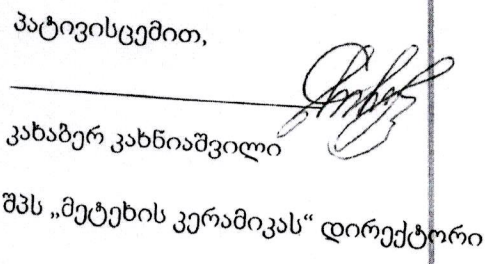 პატივისცემით,
კახაბერ კახნიაშვილი
შპს „მეტეხის კერამიკას“ დირექტორი